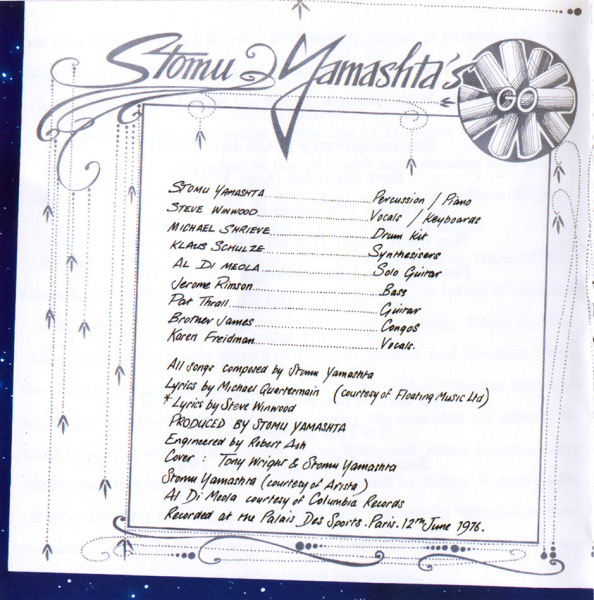 Stomu Yamashta's
GO
STOMU YAMASHTA..........................Percussion / Piano
STEVE WINWOOD..........................Vocals / Keyboards
MICHAEL SHRIEVE..........................Drum Kit
KLAUS SCHULZE..........................Synthesisers
AL DI MEOLA..........................Solo Guitar
Jerome Rimson..........................Bass
Pat Thrall..........................Guitar
Brother James..........................Congos
Karen Freidman..........................Vocals.
All songs composed by Stomu Yamashta
Lyrics by Michael Quartermain (courtesy of Floating Music Ltd)
* Lyrics by Steve Winwood
PRODUCED BY STOMU YAMASHTA
Engineered by Robert Ash
Cover : Tony Wright & Stomu Yamashta
Stomu Yamashta (courtesy of Arista)
Al Di Meola courtesy of Columbia Records
Recorded at the Palais Des Sports. Paris. 12th June 1976.